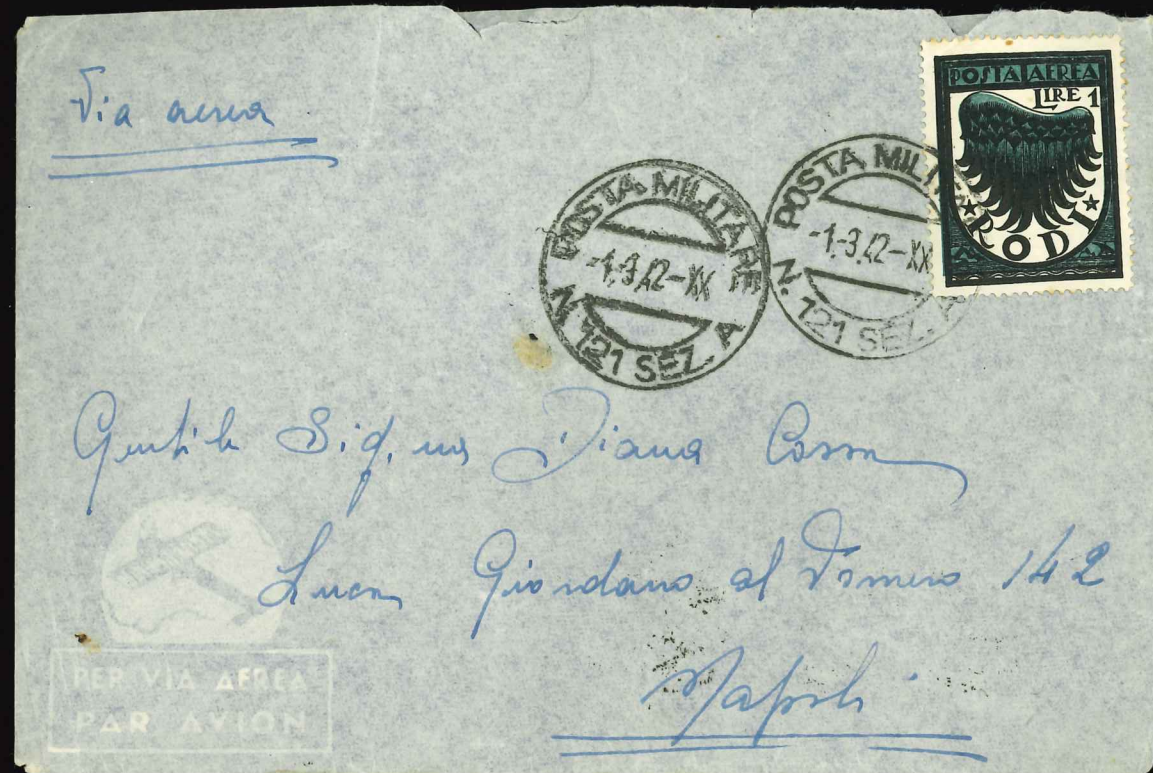 Via aerea
POSTA AEREA
LIRE 1
RODI
POSTA MILITARE
-1.3.42-XX
N. 121 SEZ. A
POSTA MILITARE
-1.3.42-XX
N. 121 SEZ. A
Gentile Sig.na Diana
Luca Giordano al Vomero 142
Napoli
PER VIA AEREA
PAR AVION